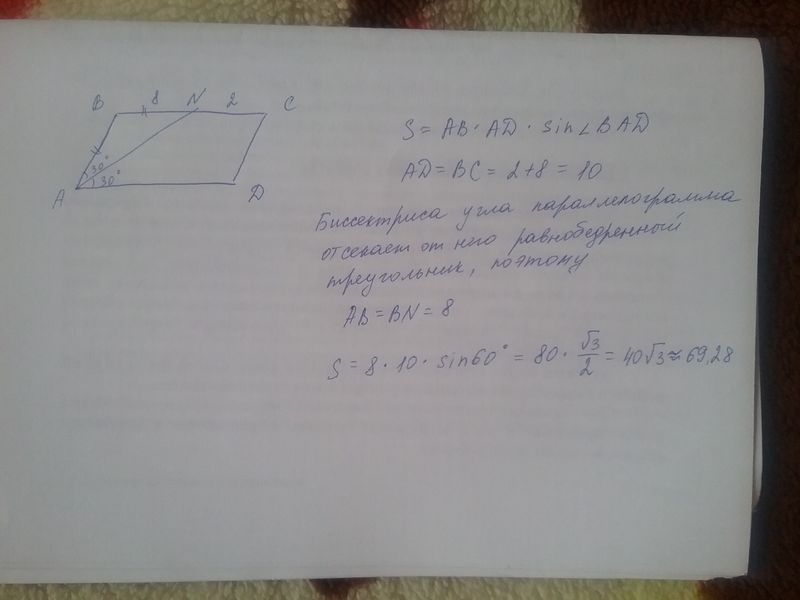 B 8 N 2 C
30°
30°
A D
S = AB · AD · sin∠BAD
AD = BC = 2+8 = 10
Биссектриса угла параллелограмма
отсекает от него равнобедренный
треугольник, поэтому
AB = BN = 8
S = 8 · 10 · sin60° = 80 · √3/2 = 40√3 ≈ 69,28